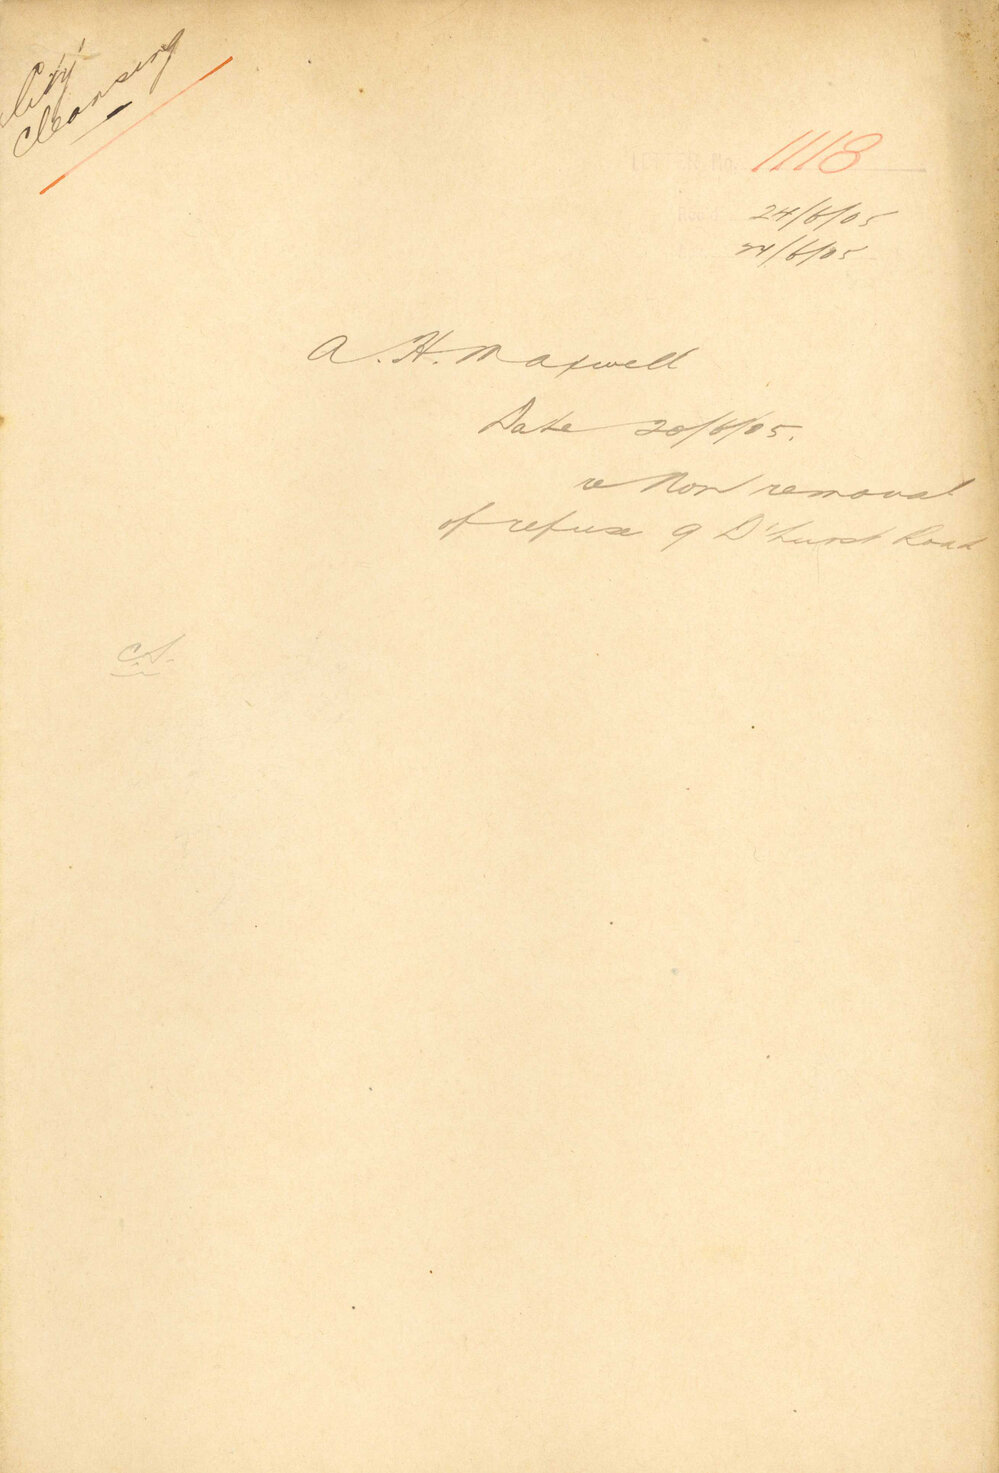 City
Cleansing
LETTER No. 1118
Rec'd 24/6/05
24/6/05
A. H. Maxwell
Date 20/6/05.
re Non removal
of refuse 9 D'hurst Road
C.S.